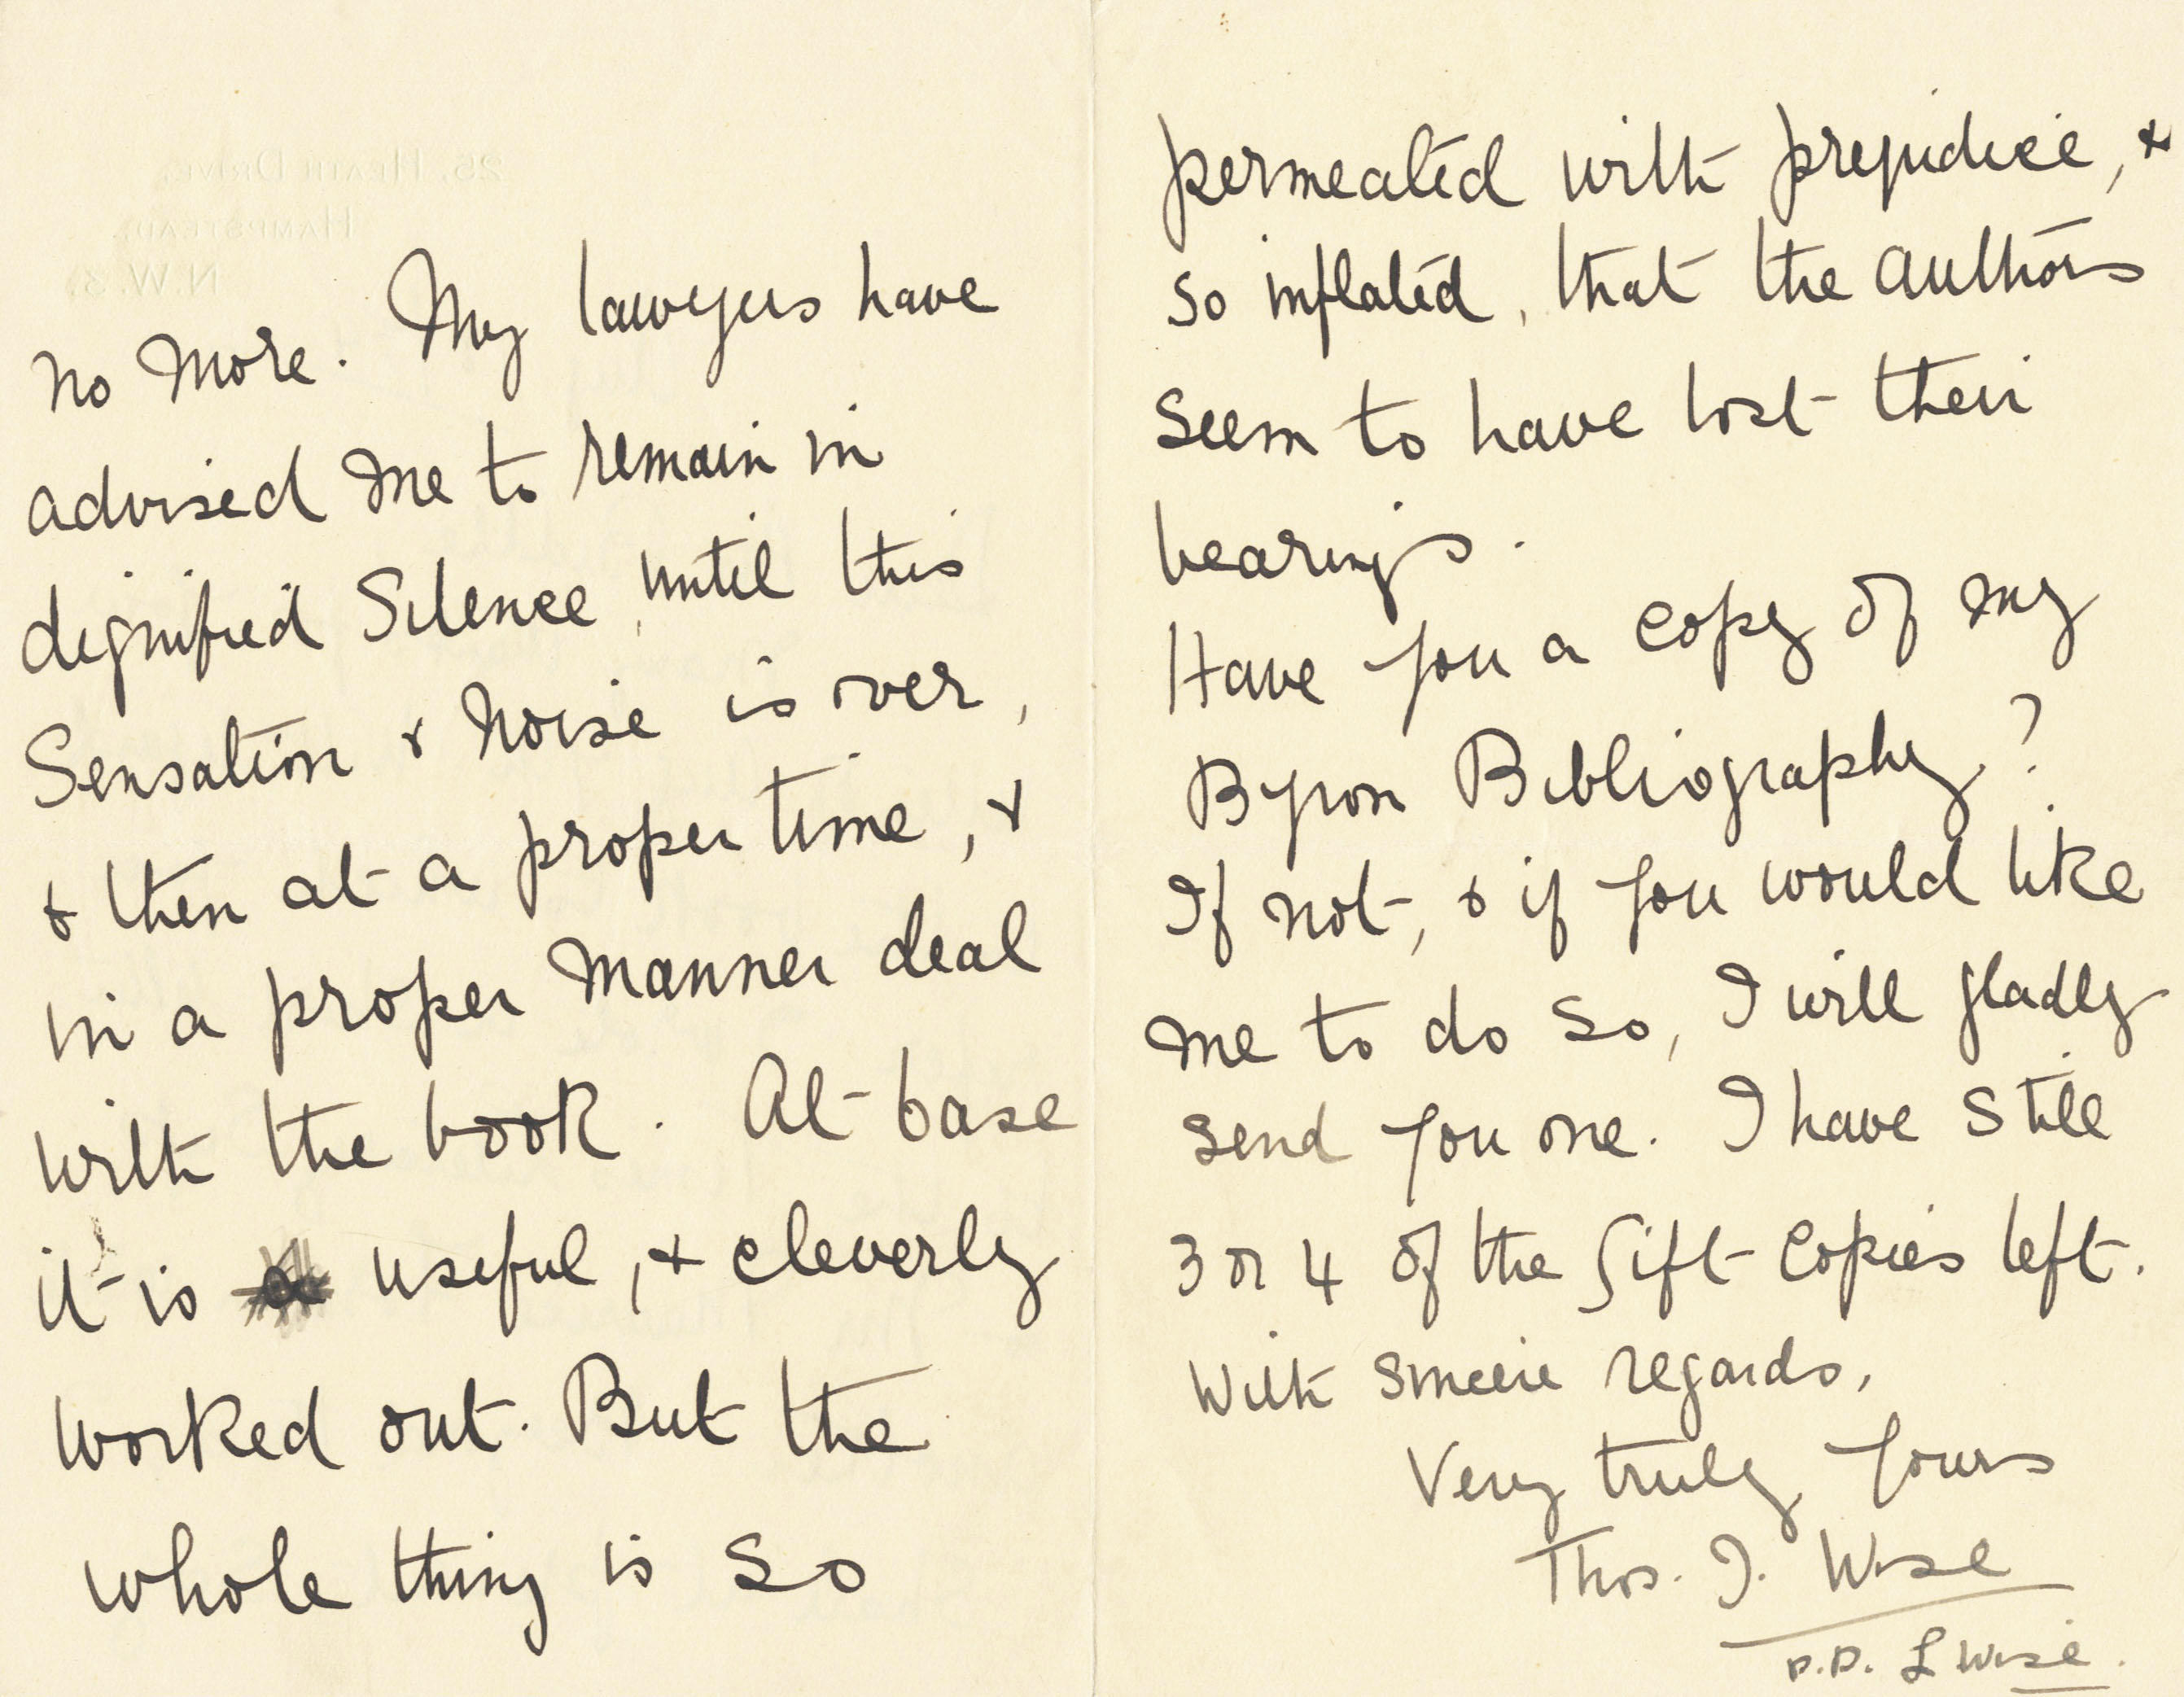 25, Heath Drive,
Hampstead,
N.W.3.
no more. My lawyers have
advised me to remain in
dignified Silence, until this
Sensation & Noise is over,
& then at a proper time, &
in a proper manner deal
with the book. At base
it is a useful, & cleverly
worked out. But the
whole thing is so
permeated with prejudice, &
so inflated, that the authors
seem to have lost their
bearings.
Have you a copy of my
Byron Bibliography?
If not, & if you would like
me to do so, I will gladly
send you one. I have still
3 or 4 of the gift copies left.
With sincere regards,
Very truly yours
Thos. J. Wise
p.p. L Wise.